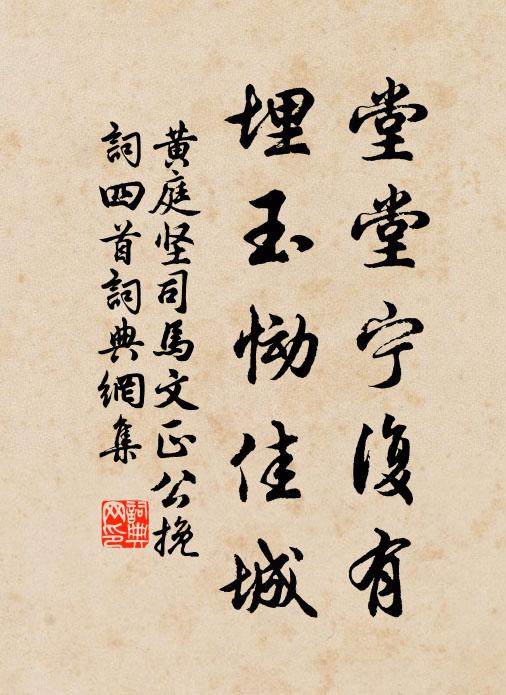 堂堂宁復有
埋玉恸佳城
黄庭坚司馬文正公挽
詞四首詞典網集
詞典网印